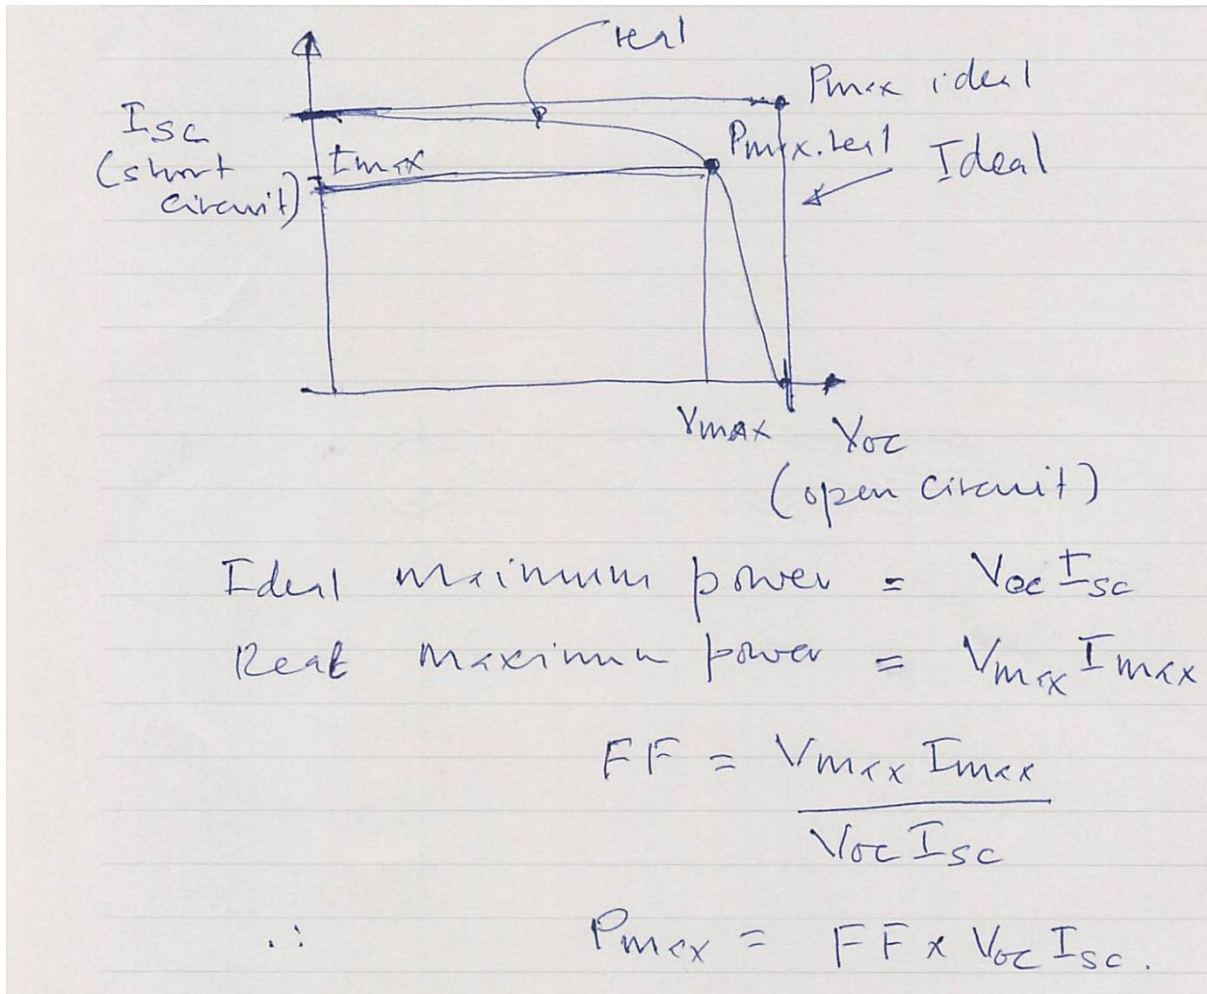 real
Pmax ideal
Isc
(short
circuit)
Imax
Pmax.real
Ideal
Vmax
Voc
(open circuit)
Ideal maximum power = Voc Isc
Real maximum power = Vmax Imax
FF = Vmax Imax
Voc Isc
∴ Pmax = FF x Voc Isc.